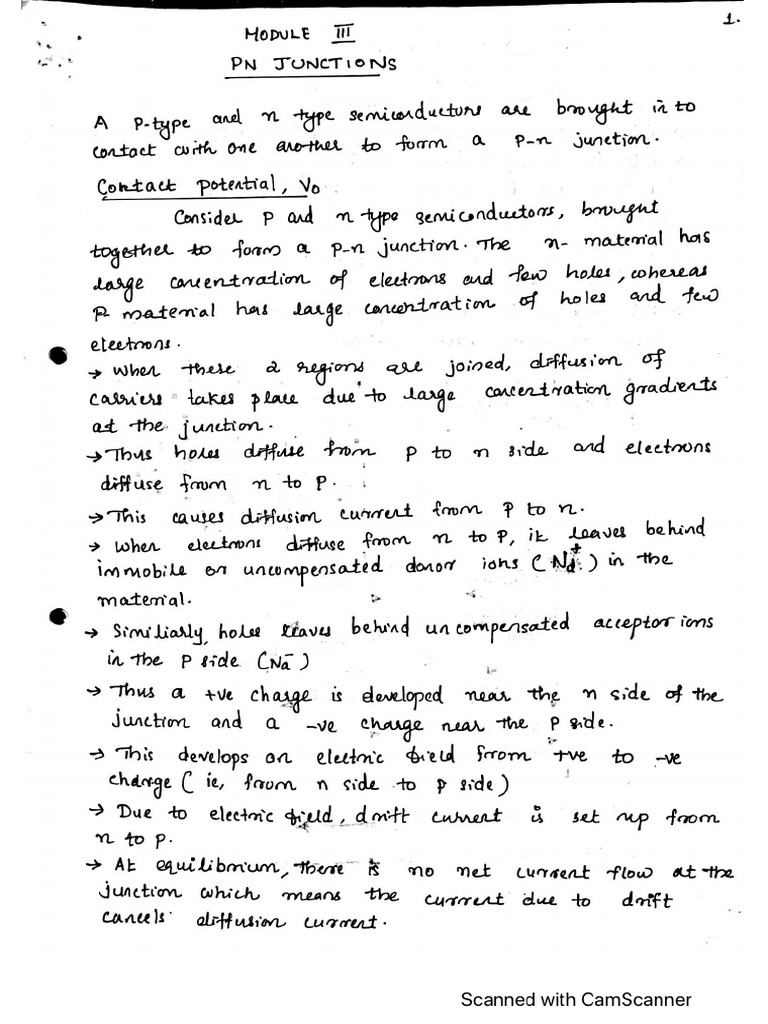 1.
MODULE III
PN JUNCTIONS
A P-type and n type semiconductors are brought in to
contact with one another to form a P-n junction.
Contact potential, V0
Consider P and n type semiconductors, brought
together to form a P-n junction. The n- material has
large concentration of electrons and few holes, whereas
P material has large concentration of holes and few
electrons.
→ When these 2 regions are joined, diffusion of
carriers takes place due to large concentration gradients
at the junction.
→ Thus holes diffuse from P to n side and electrons
diffuse from n to P.
→ This causes diffusion current from P to n.
→ When electrons diffuse from n to P, it leaves behind
immobile or uncompensated donor ions (Nd+) in the
material.
→ Similiarly, holes leaves behind uncompensated acceptor ions
in the P side (Na-)
→ Thus a +ve charge is developed near the n side of the
junction and a -ve charge near the P side.
→ This develops an electric field from +ve to -ve
charge (ie, from n side to P side)
→ Due to electric field, drift current is set up from
n to p.
→ At equilibrium, there is no net current flow at the
junction which means the current due to drift
cancels diffusion current.
Scanned with CamScanner